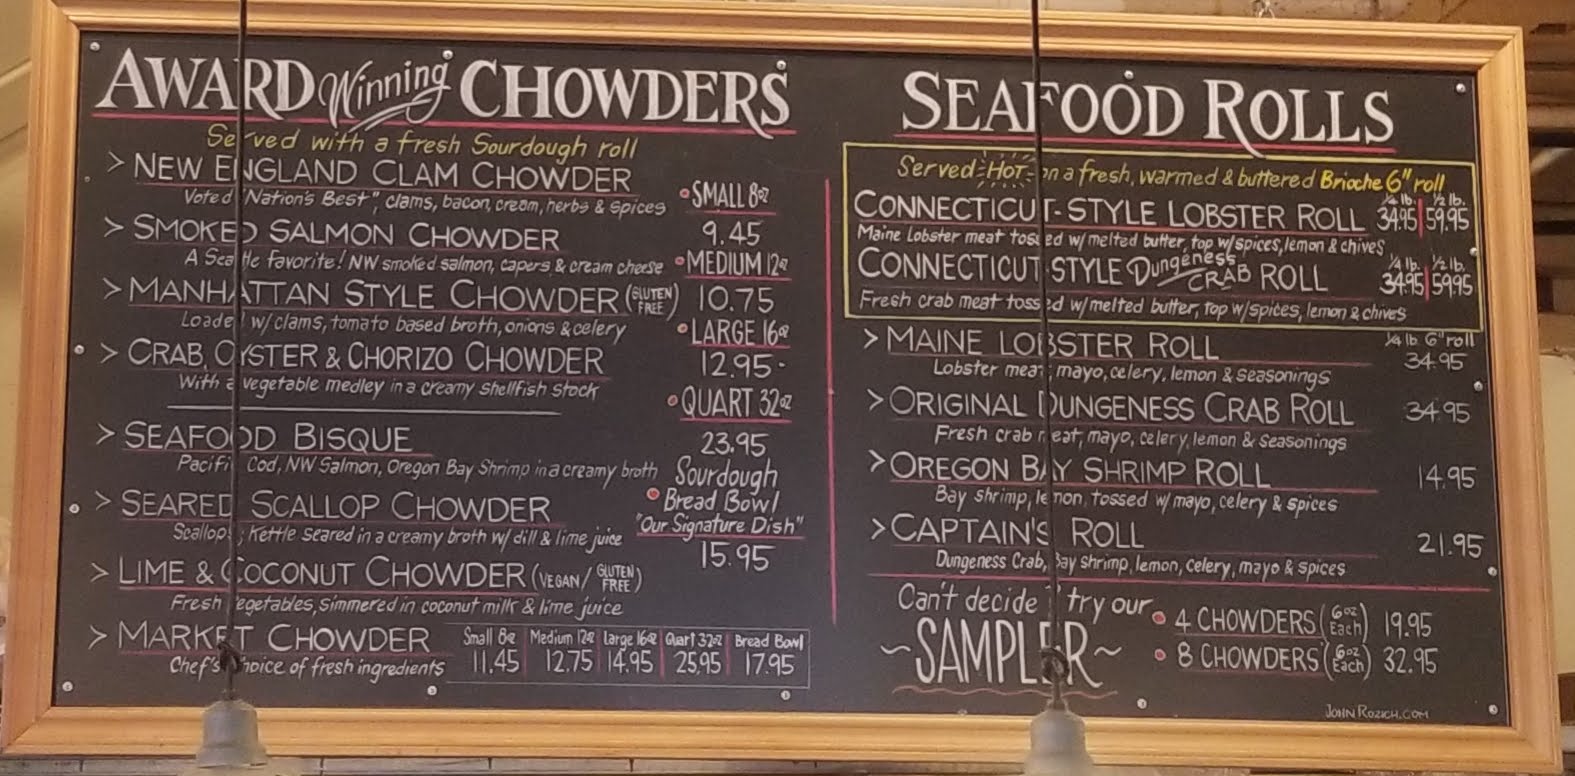 AWARD Winning CHOWDERS
Served with a fresh Sourdough roll
> NEW ENGLAND CLAM CHOWDER
Voted "Nation's Best", clams, bacon, cream, herbs & spices
> SMOKED SALMON CHOWDER
A Seattle favorite! NW smoked salmon, capers & cream cheese
> MANHATTAN STYLE CHOWDER (GLUTEN FREE)
Loaded w/clams, tomato based broth, onions & celery
> CRAB, OYSTER & CHORIZO CHOWDER
With a vegetable medley in a creamy shellfish stock
> SEAFOOD BISQUE
Pacific Cod, NW Salmon, Oregon Bay Shrimp in a creamy broth
> SEARED SCALLOP CHOWDER
Scallops, Kettle seared in a creamy broth w/ dill & lime juice
> LIME & COCONUT CHOWDER (VEGAN/ GLUTEN FREE)
Fresh vegetables, simmered in coconut milk & lime juice
> MARKET CHOWDER
Chef's choice of fresh ingredients
• SMALL 8oz
9.45
• MEDIUM 12oz
10.75
• LARGE 16oz
12.95
• QUART 32oz
23.95
Sourdough
• Bread Bowl
"Our Signature Dish"
15.95
Small 8oz Medium 12oz Large 16oz Quart 32oz Bread Bowl
11.45 12.75 14.95 25.95 17.95
SEAFOOD ROLLS
Served HOT on a fresh, warmed & buttered Brioche 6" roll
¼ lb. ½ lb.
CONNECTICUT-STYLE LOBSTER ROLL 34.95 59.95
Maine Lobster meat tossed w/melted butter, top w/spices, lemon & chives
¼ lb. ½ lb.
CONNECTICUT STYLE Dungeness CRAB ROLL 34.95 59.95
Fresh crab meat tossed w/melted butter, top w/spices, lemon & chives
¼ lb. 6" roll
> MAINE LOBSTER ROLL 34.95
Lobster meat, mayo, celery, lemon & seasonings
> ORIGINAL DUNGENESS CRAB ROLL 34.95
Fresh crab meat, mayo, celery, lemon & seasonings
> OREGON BAY SHRIMP ROLL 14.95
Bay shrimp, lemon, tossed w/ mayo, celery & spices
> CAPTAIN'S ROLL 21.95
Dungeness Crab, Bay shrimp, lemon, celery, mayo & spices
Can't decide? try our
~SAMPLER~
• 4 CHOWDERS (6oz Each) 19.95
• 8 CHOWDERS (6oz Each) 32.95
JOHN ROZICH.COM